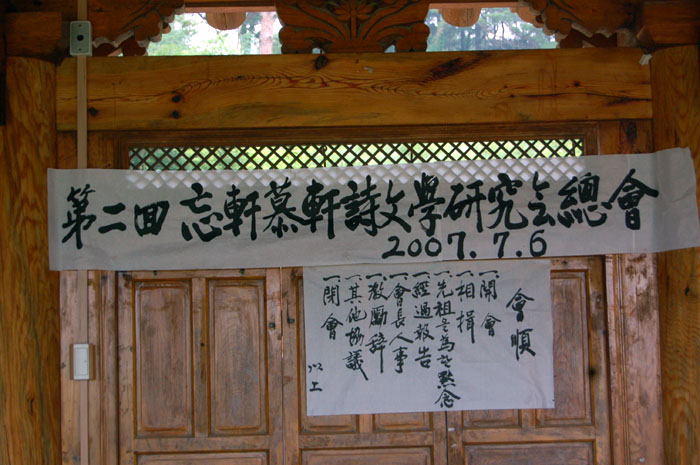 第二回 忘軒慕軒詩文學研究会總會
2007. 7. 6
會順
一. 開會
一. 相揖
一. 先祖를 為한 默念
一. 經過報告
一. 會長人事
一. 激勵辞
一. 其他協議
一. 閉會
以上